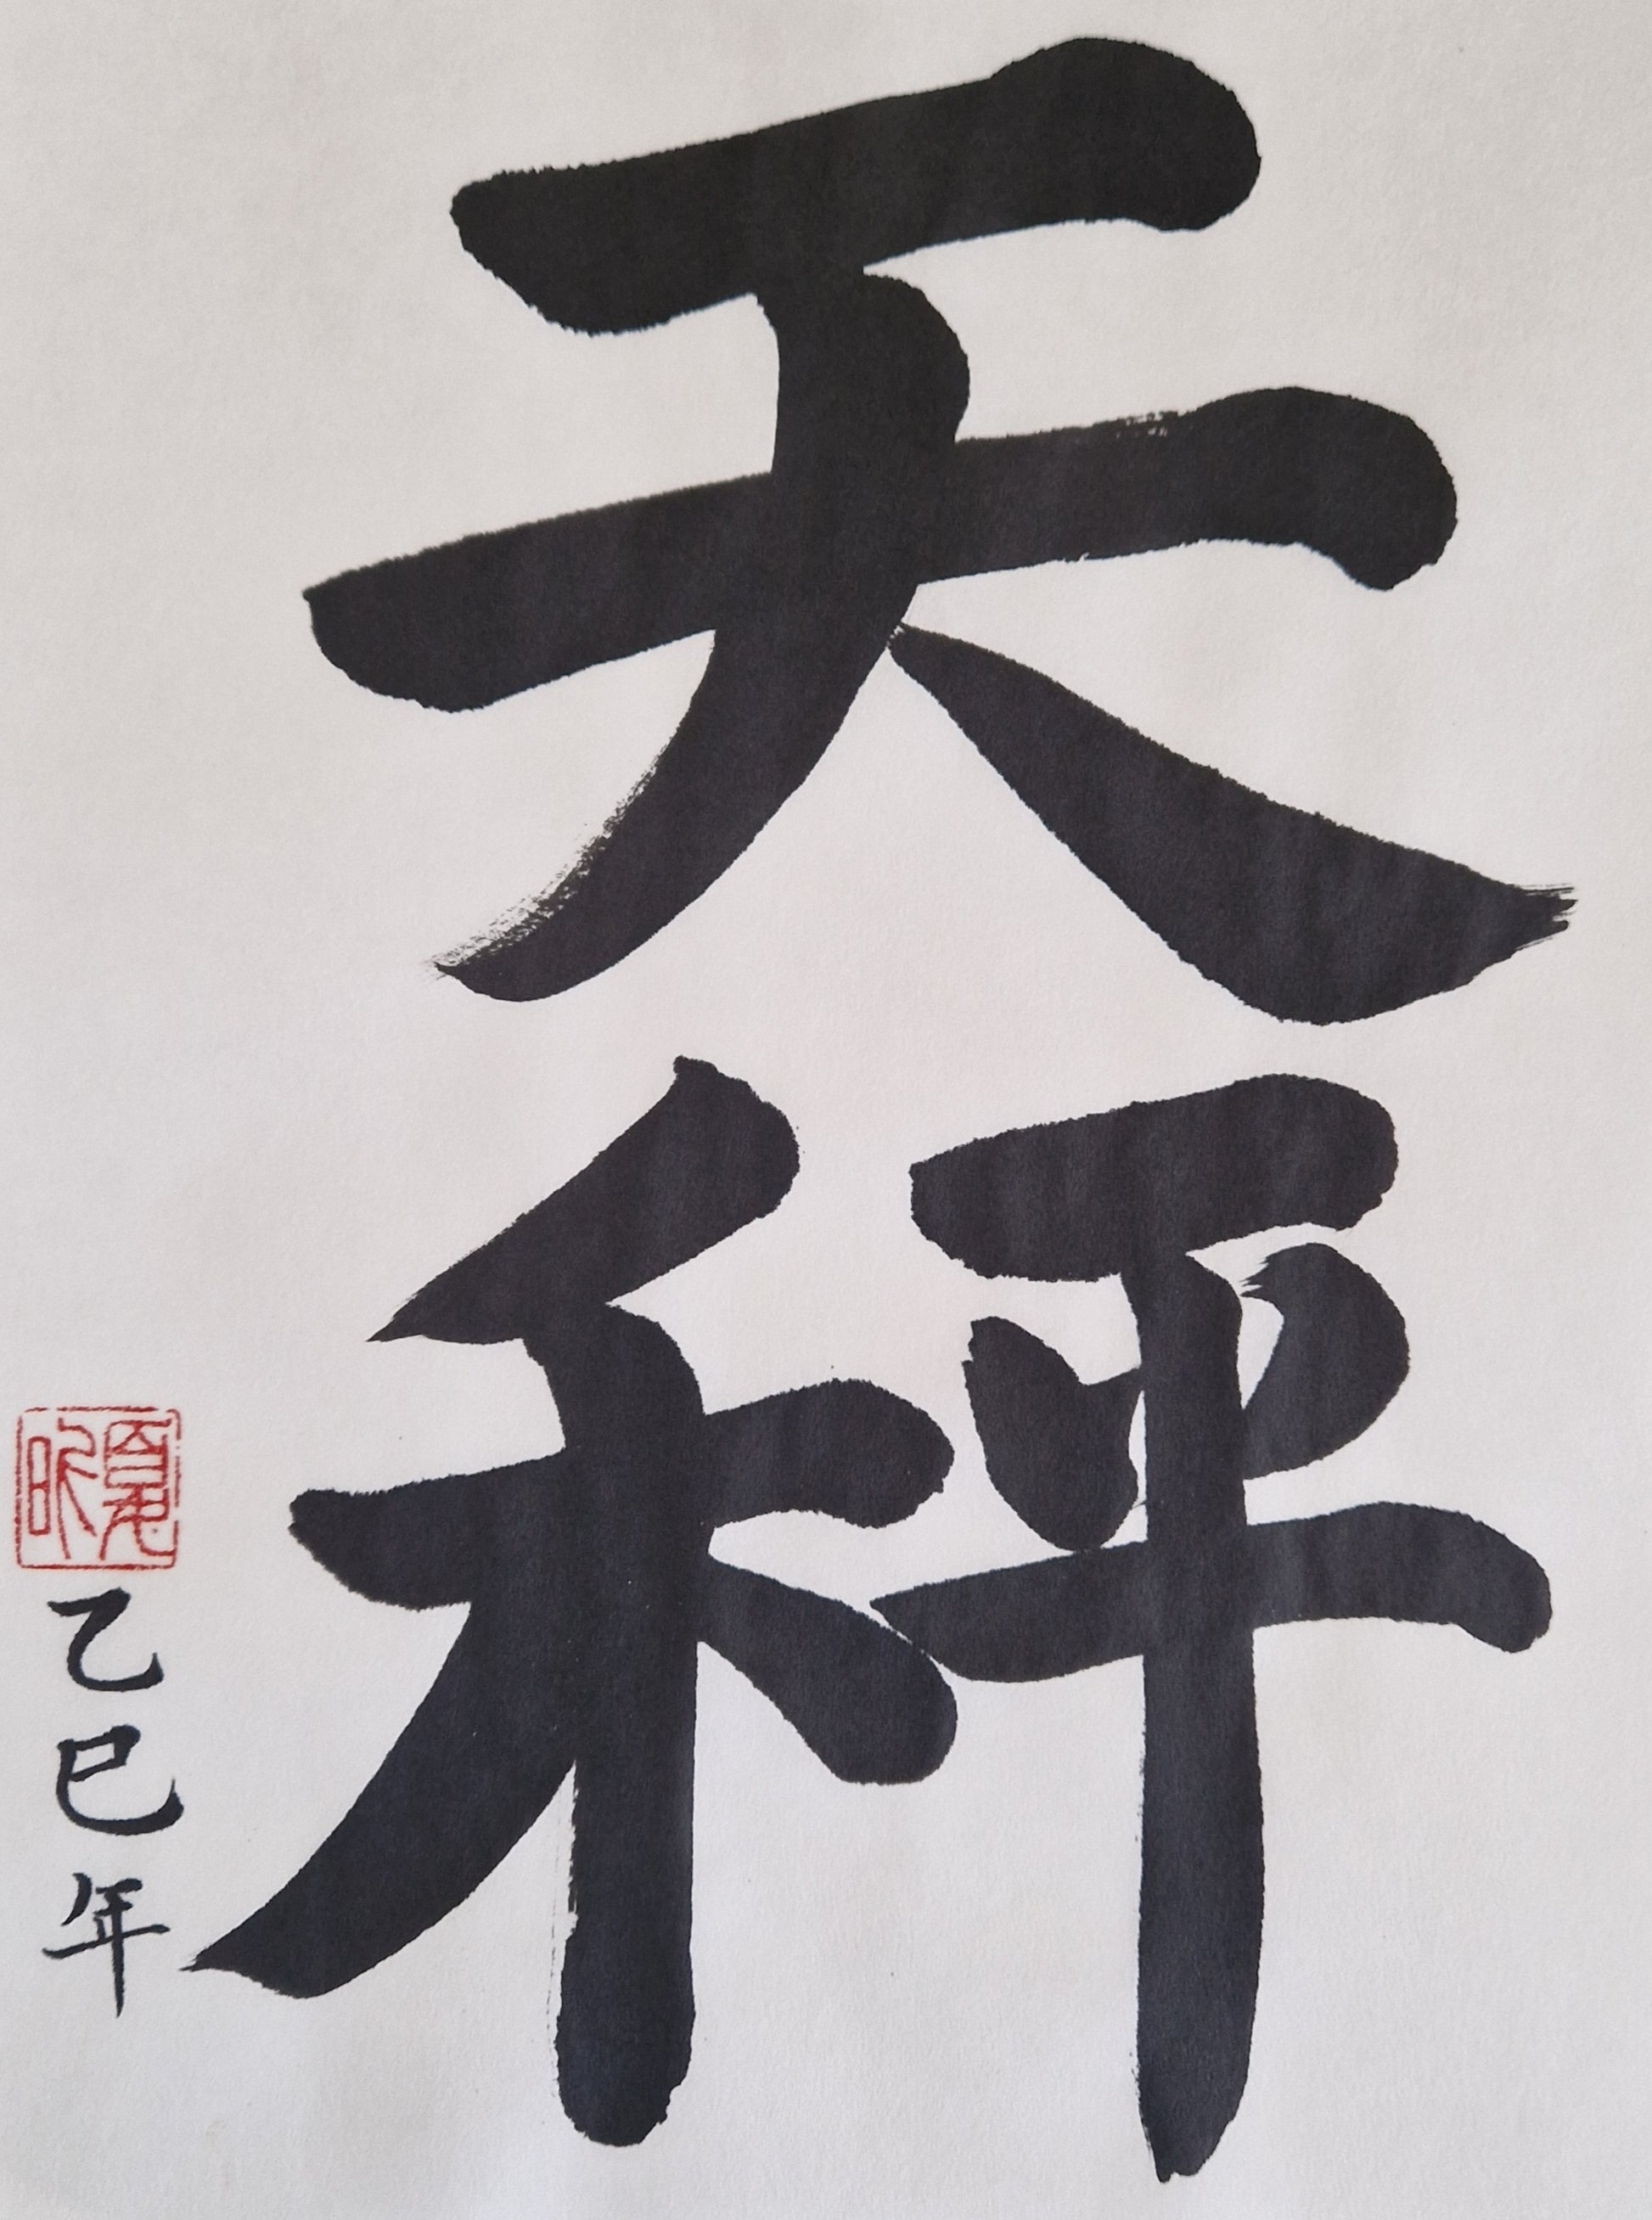 天秤
乙巳年